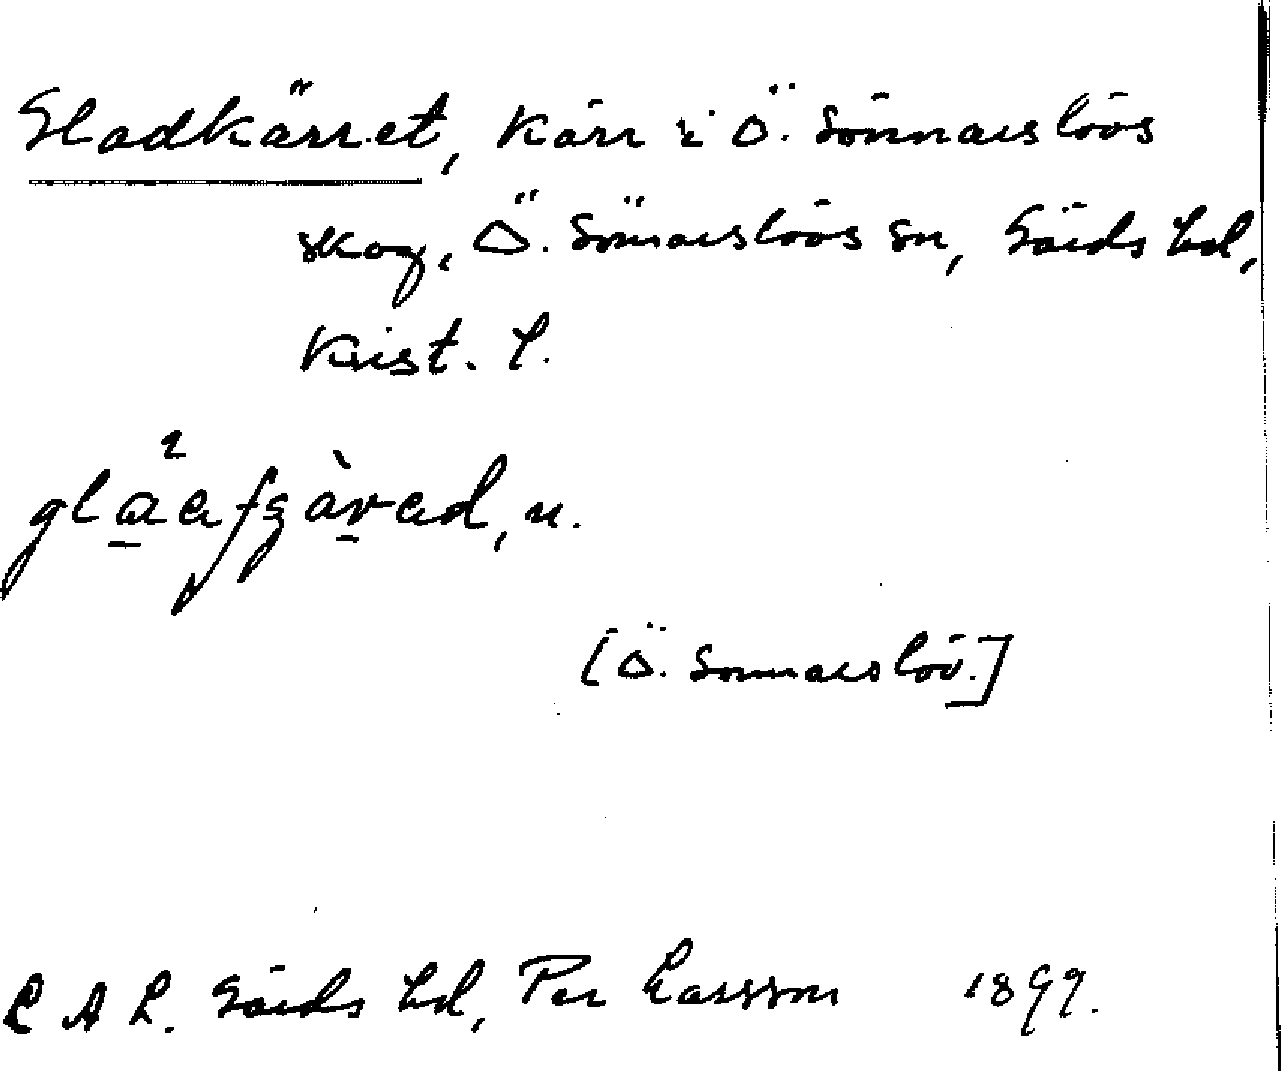 Gladkärret, Kärr i Ö. Sönnarslövs
skog, Ö. Sönnarslövs sn, Gärds hd,
Krist. l.
[Ö. Sönnarslöv.]
L A L. Gärds hd, Per Larsson 1899.